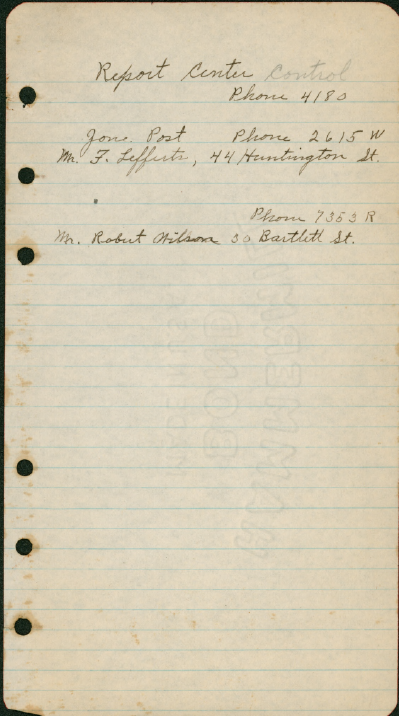 Report Center Control
Phone 4180
Zone Post Phone 2615 W
Mr. F. Lefferts, 44 Huntington St.
Phone 7353 R
Mr. Robert Wilson 30 Bartlett St.
HAMMERMILL
BOND